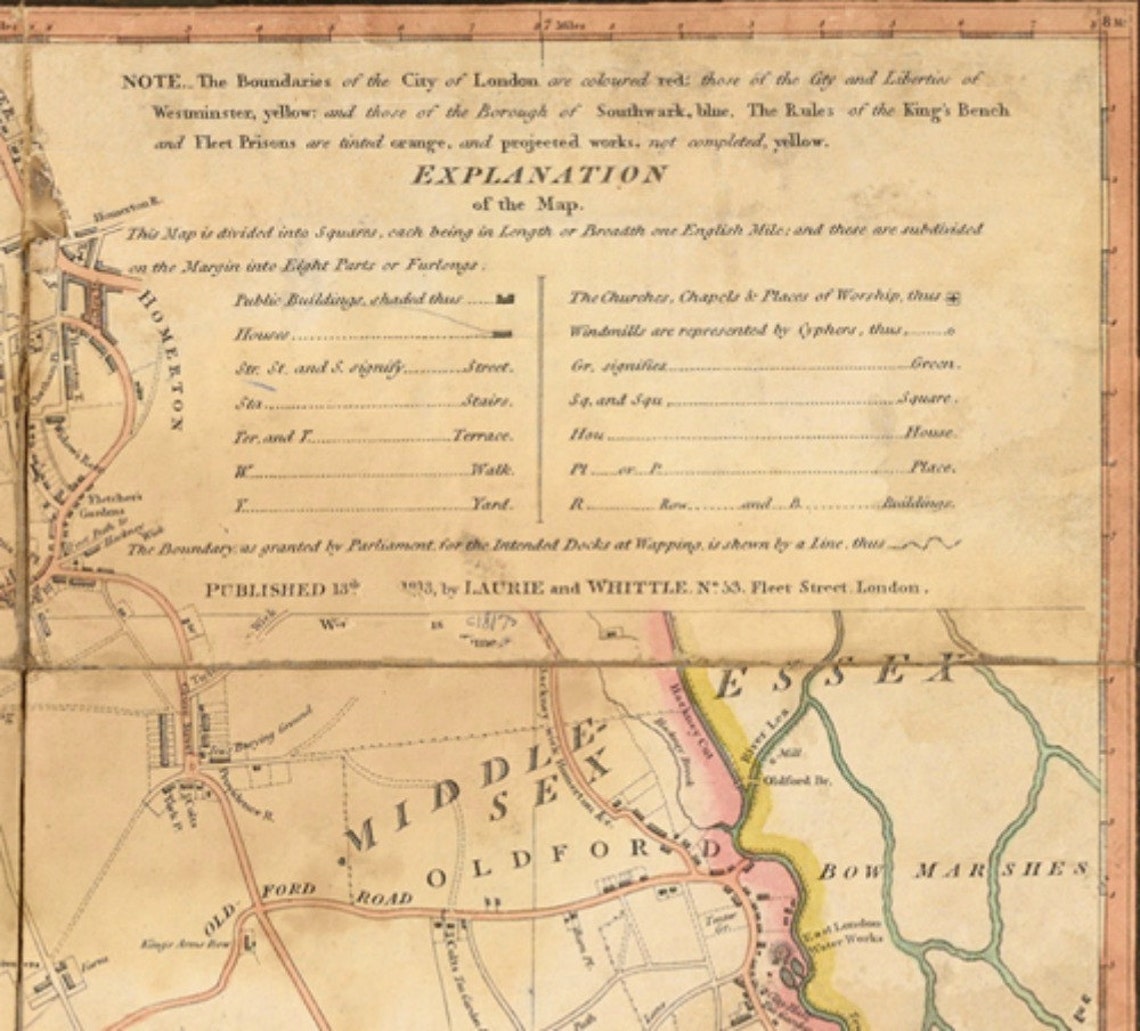 7 Miles
8 M
NOTE.. The Boundaries of the City of London are coloured red; those of the City and Liberties of
Westminster, yellow; and those of the Borough of Southwark, blue. The Rules of the King's Bench
and Fleet Prisons are tinted orange, and projected works, not completed, yellow.
EXPLANATION
of the Map.
This Map is divided into Squares, each being in Length or Breadth one English Mile; and these are subdivided
on the Margin into Eight Parts or Furlongs;
Public Buildings, shaded thus
Houses
Str. St. and S. signify Street.
Sta Stairs.
Ter. and T. Terrace.
W Walk.
Y. Yard.
The Churches, Chapels & Places of Worship, thus
Windmills are represented by Cyphers, thus, o
Gr. signifies Green.
Sq. and Squ Square.
Hou House.
Pl or P. Place.
R Row and B. Buildings.
The Boundary, as granted by Parliament, for the Intended Docks at Wapping, is shewn by a Line, thus
PUBLISHED 13th 1813, by LAURIE and WHITTLE. No. 53. Fleet Street. London.
Homerton R.
HOMERTON
Fletcher's
Gardens
Wick
ESSEX
Hackney Cut
River Lea
Mill
Oldford Br.
Burying Ground
MIDDLE-
SEX
OLDFORD
BOW MARSHES
OLD FORD ROAD
Kings Arms Row
East London
Water Works
Farm